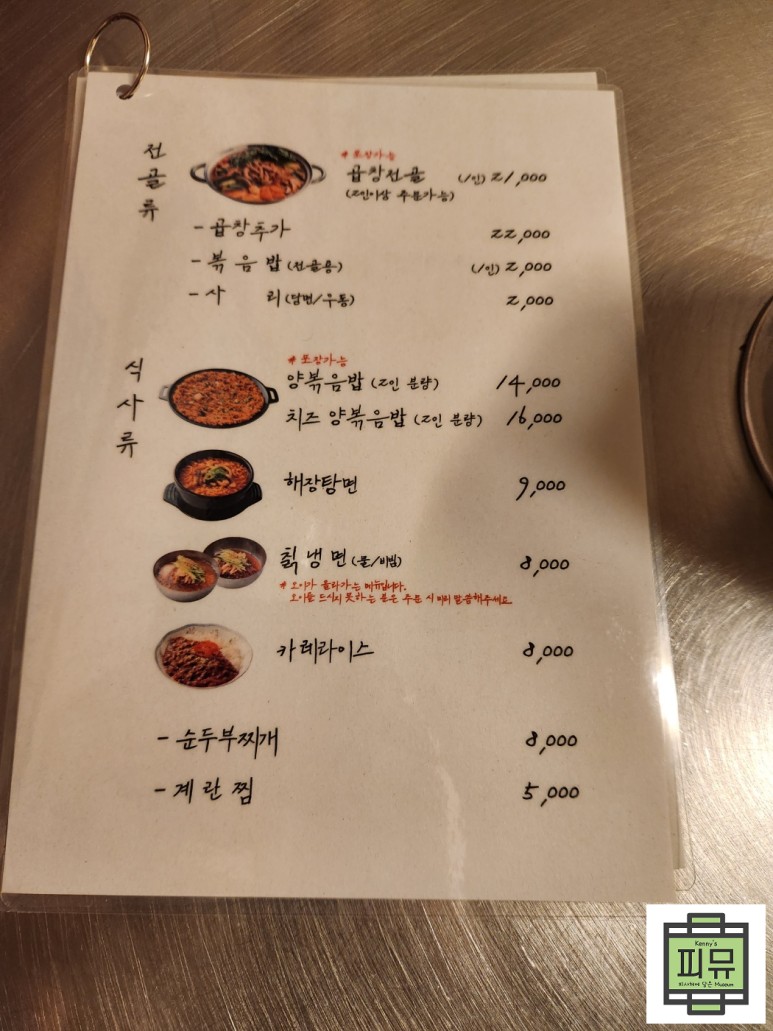 전골류
# 포장가능
곱창전골 (1인) 21,000
(2인이상 주문가능)
- 곱창추가 22,000
- 볶음밥 (전골용) (1인) 2,000
- 사 리 (당면/우동) 2,000
식사류
# 포장가능
양볶음밥 (2인 분량) 14,000
치즈 양볶음밥 (2인 분량) 16,000
해장탕면 9,000
칡냉면 (물/비빔) 8,000
# 오이가 올라가는 메뉴입니다.
오이를 드시지 못하는 분은 주문 시 미리 말씀해주세요
카레라이스 8,000
- 순두부찌개 8,000
- 계란찜 5,000
Kenny's
피뮤
피사체에 담은 Museum